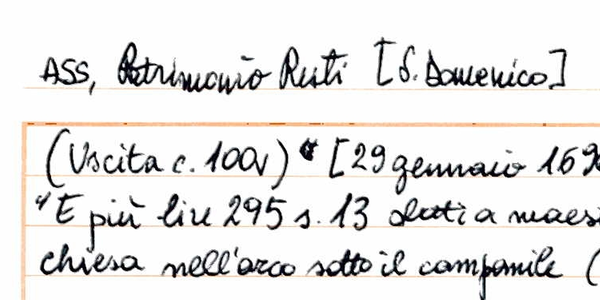 ASS, Patrimonio Resti [S. Domenico]
(Uscita c. 100v) [29 gennaio 169
"E più lire 295 s. 13 dati a maes
chiesa nell'arco sotto il campanile (